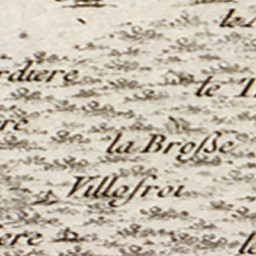 le
rdiere
le T
re
la Brosse
Villefroi
ere
le